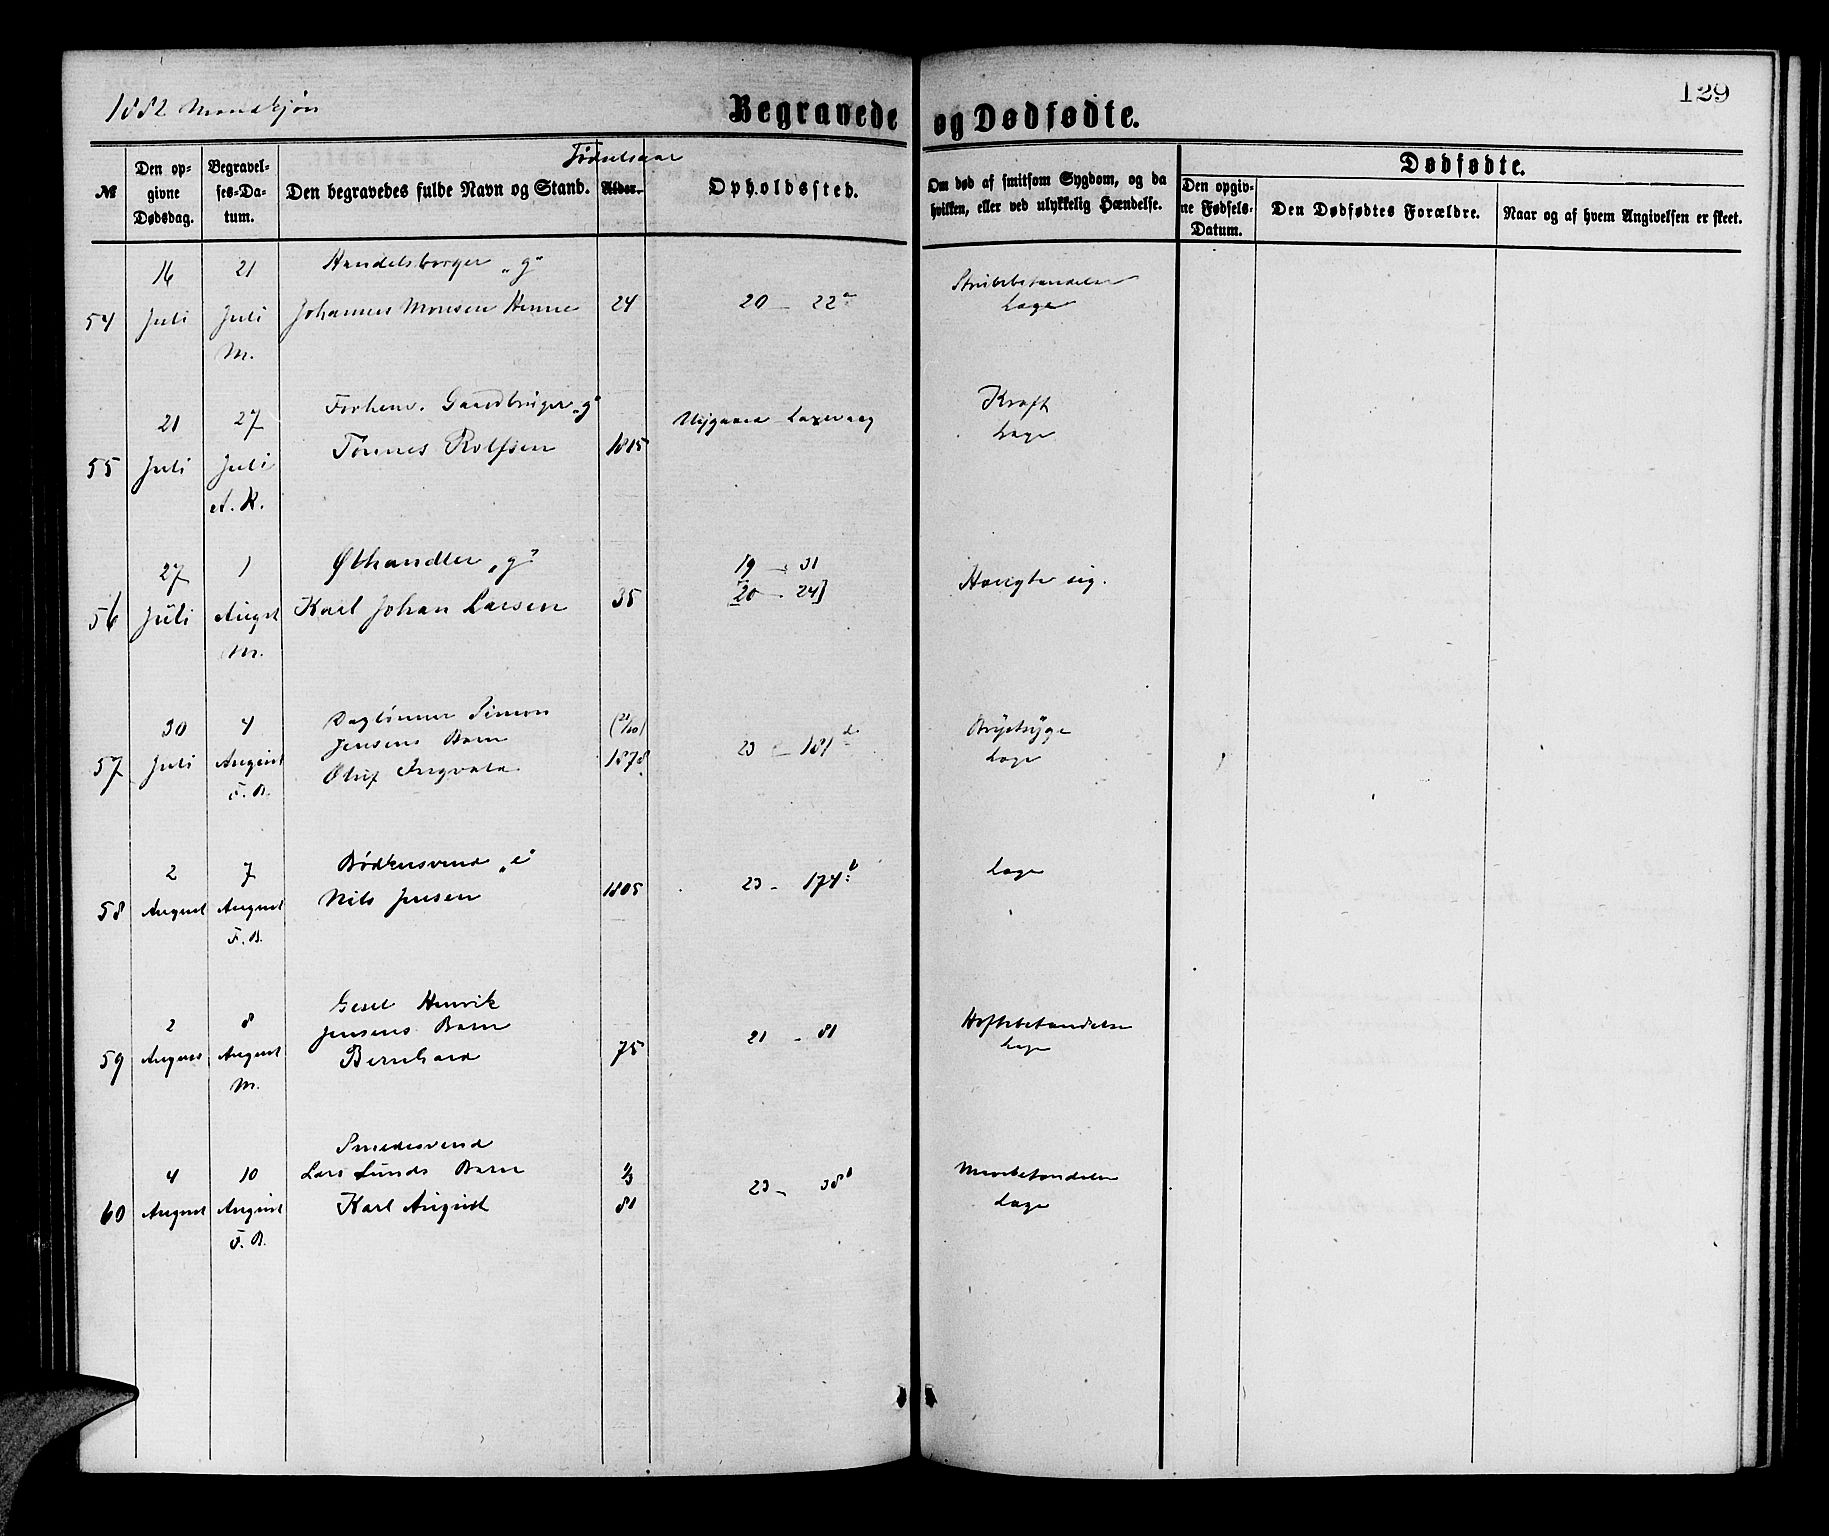 129
1882 Mandkjøn
Begravede og Dødfødte.
№
Den op-
givne
Dødsdag.
Begravel-
ses-Da-
tum.
Den begravedes fulde Navn og Stand.
Fødselsaar
Alder.
Opholdssted.
Om død af smitsom Sygdom, og da
hvilken, eller ved ulykkelig Hændelse.
Dødfødte.
Den opgiv-
ne Fødsels-
Datum.
Den Dødfødtes Forældre.
Naar og af hvem Angivelsen er skeet.
54
16
Juli
21
Juli
M.
Handelsborger „g"
Johannes Monsen Henne
24
20 — 22 a
Læge
55
21
Juli
27
Juli
A. K.
Forhenv. Gaardbruger „g"
Tønnes Rolfsen
1815
Nygaard Laxevaag
Kræft
Læge
56
27
Juli
1
August
M.
Ølhandler „g"
Karl Johan Larsen
35
19 — 31
[20 — 24]
Hængte sig.
57
30
Juli
4
August
F. B.
Daglønner Simon
Jensens Barn
Oluf Ingvald
(21/10)
1878
23 — 181 d
Brystsyge
Læge
58
2
August
7
August
F. B.
Bødkersvend „e"
Nils Jensen
1805
23 — 174 b
Læge
59
2
August
8
August
M.
Gesel Henrik
Jensens Barn
Bernhard
75
21 — 81
Hoftebetændelse
Læge
60
4
August
10
August
F. B.
Smedesvend
Lars Lunds Barn
Karl August
81
23 — 38 b
Læge